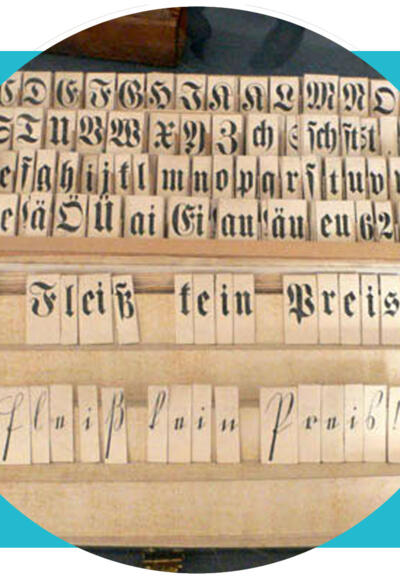 C D E F G H I K K L M N O
S T U V W X Y Z ch sch ſt
e f g h i j k l m n o p q r ſ t u v
e ä Ö Ü ai Ei au äu eu 6 2
Fleiß kein Preis
Fleiß kein Preis!